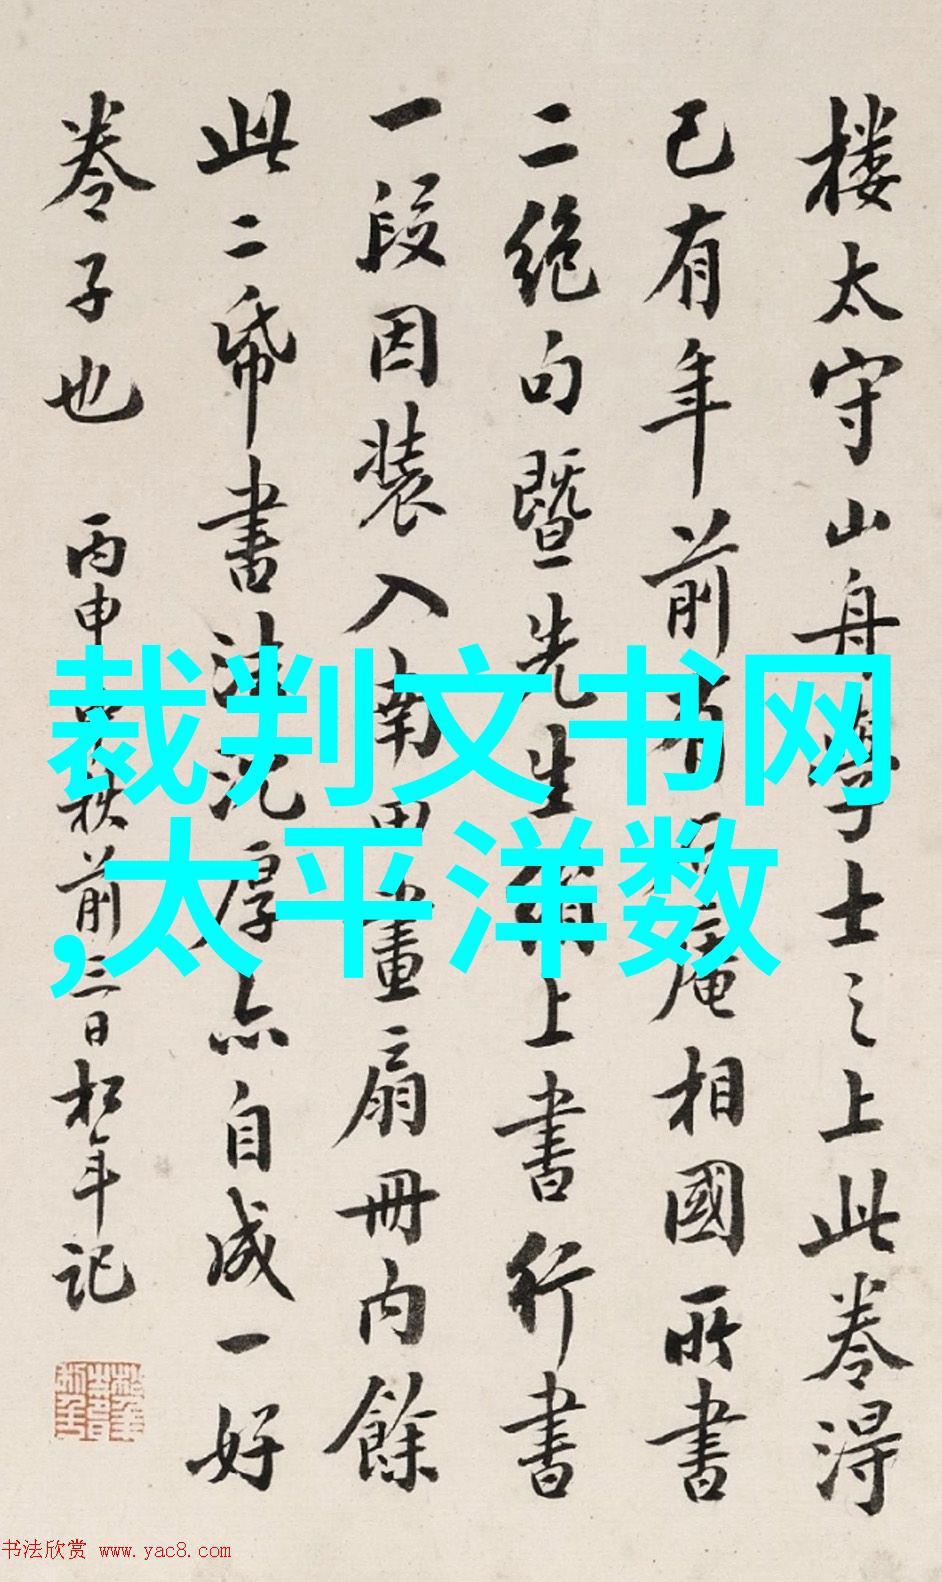 楼太守山舟學士之上此卷得
已有年前有 庵相國所書
二絕句暨先生 上書行書
一段因装入南田畫扇冊内餘
此二帋書法沉厚亦自成一好
卷子也
丙申 秋前三日松年记
裁判文书网
,太平洋数
书法欣赏 www.yac8.com